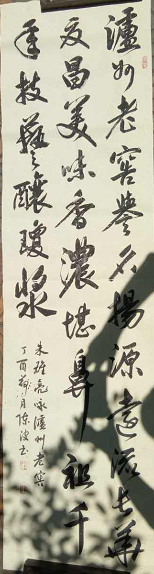 瀘州老窖譽名揚源遠流長華
夏昌美味香濃堪鼻祖千
年技藝釀瓊漿
朱亮咏瀘州老窖
丁酉月陳波書